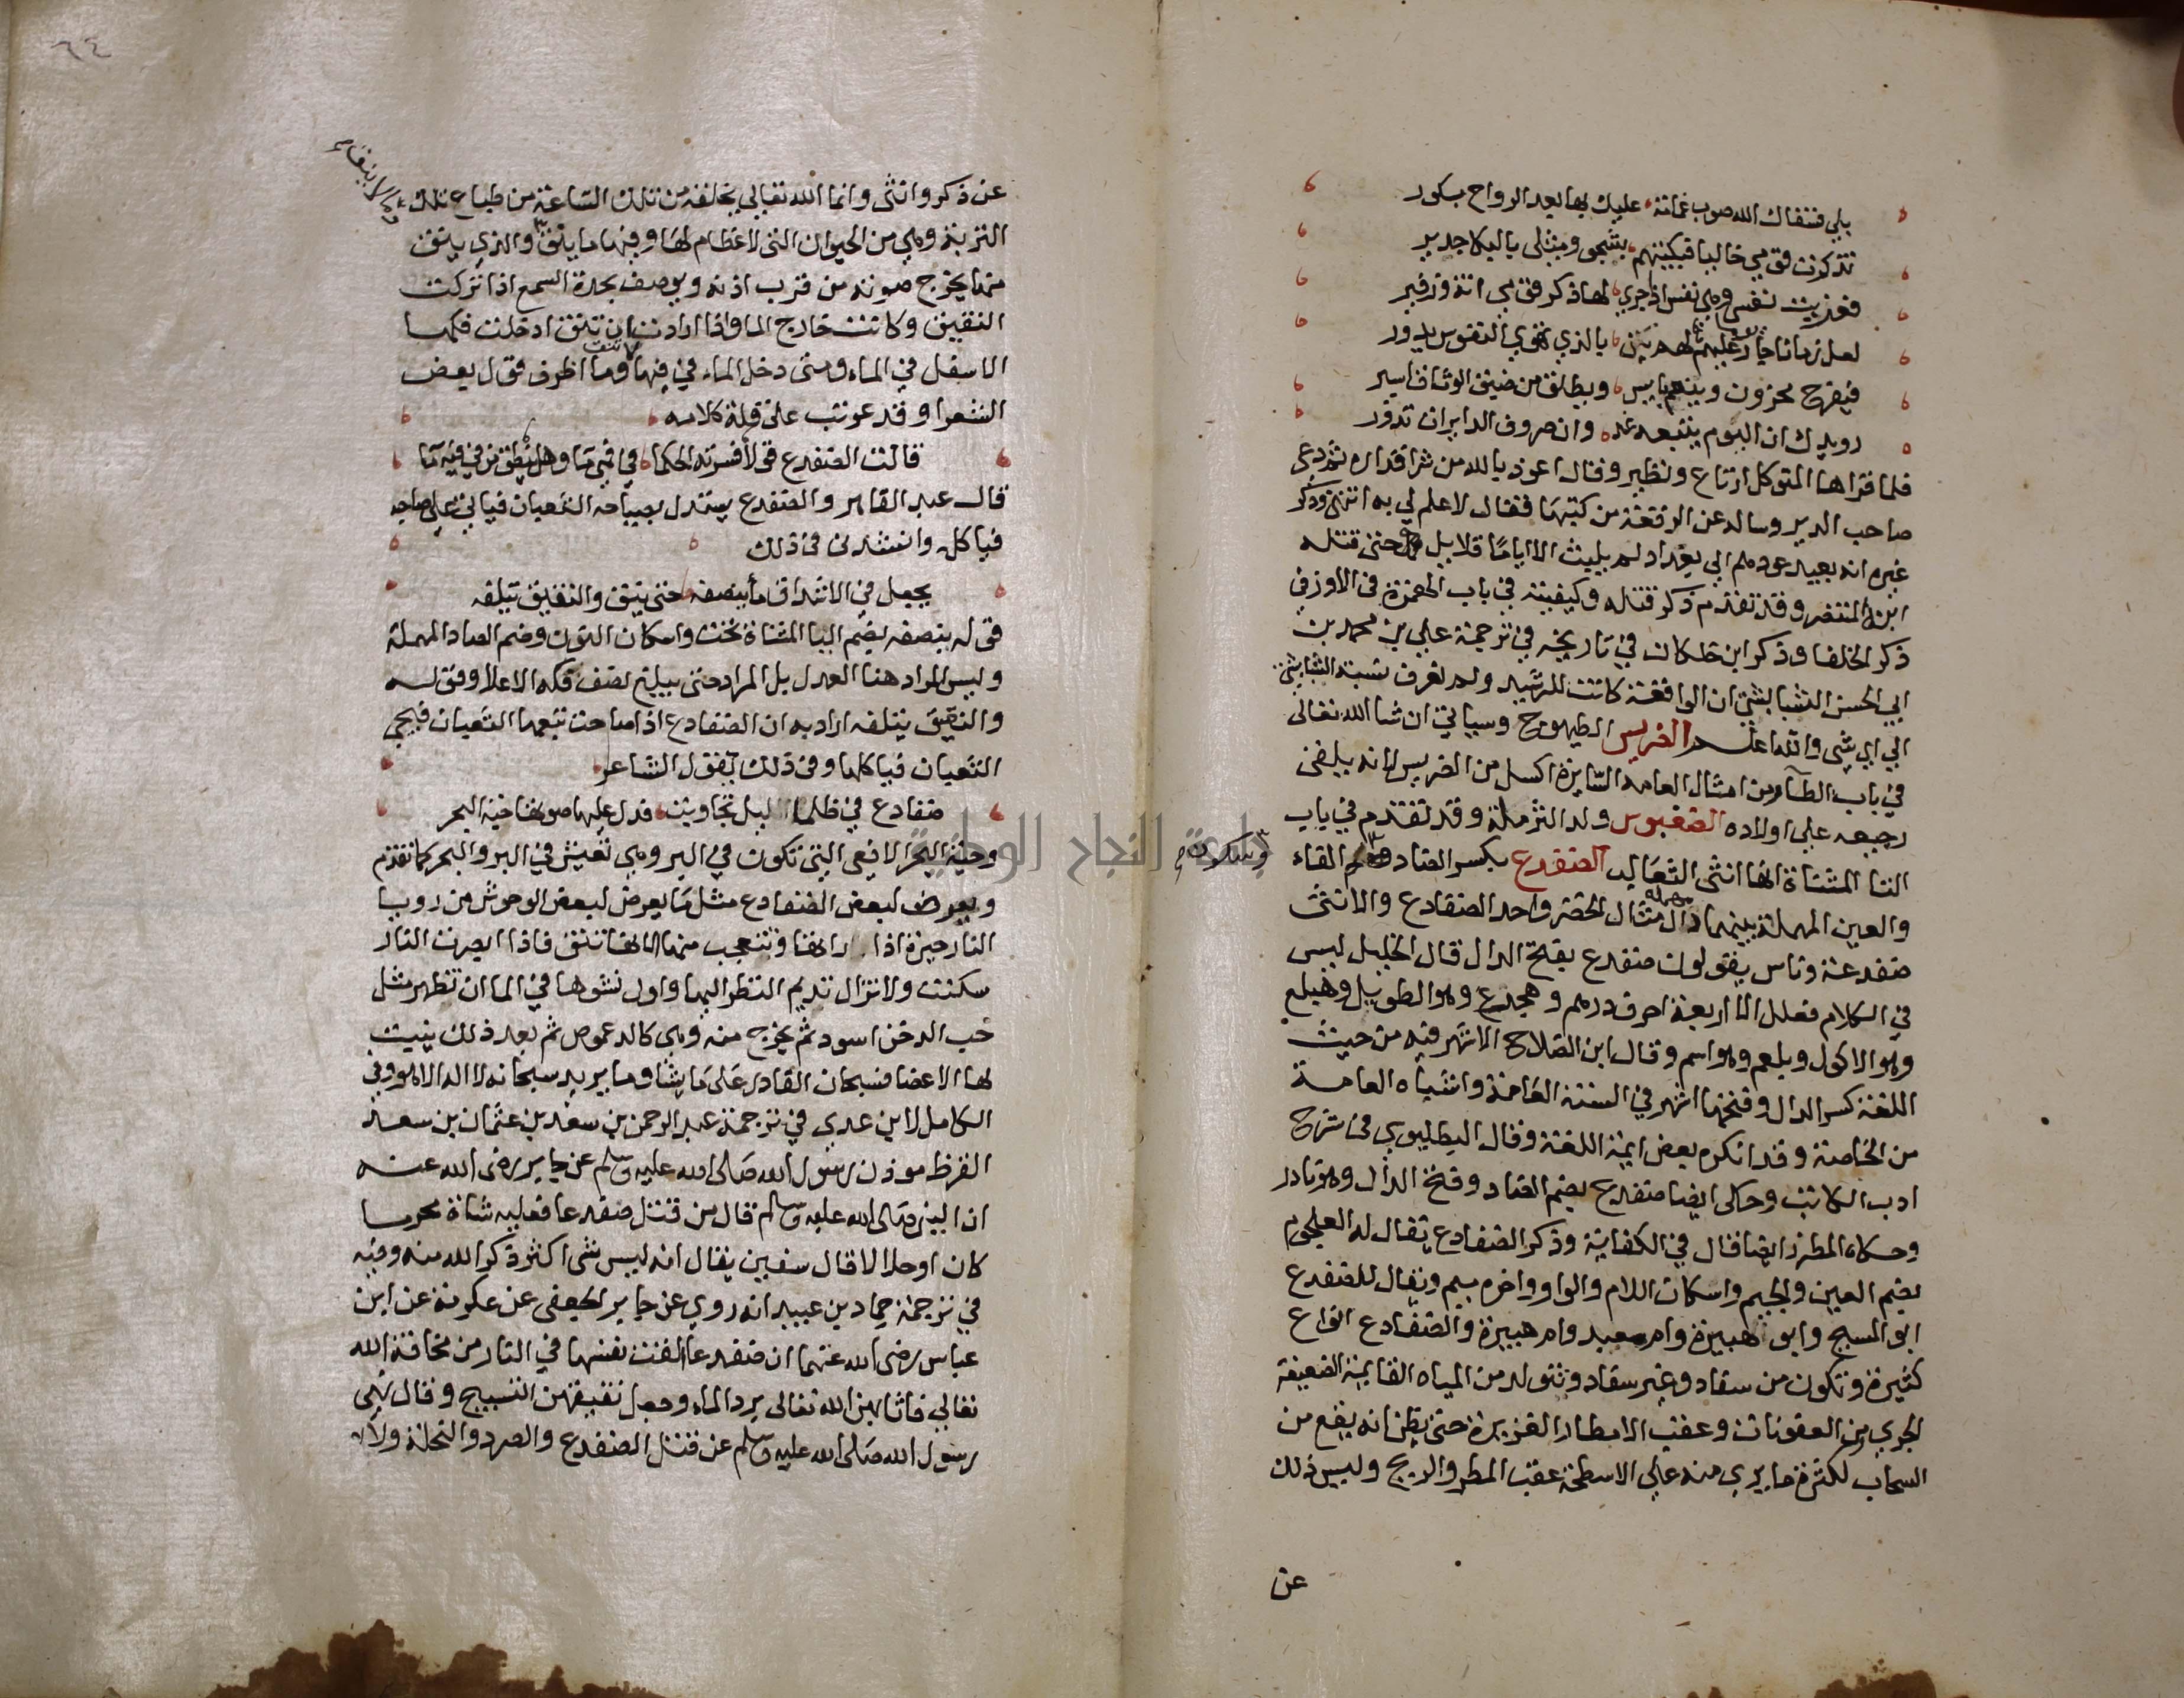 بلي فسقاك الله صوب غمامة عليك بها بعد الرواح بكور
تذكرت قومي خاليا فبكيتهم بشجو ومثلي بالبكا جدير
فعزيت نفسي وهي نفس اذا جري لها ذكر قومي انة وزفير
لعل زمانا جار يوما عليهم لهم بالذي تهوي النفوس يدور
فيفرح محزون وينعم بايس ويطلق من ضيق الوثاق اسير
رويدك ان اليوم يتبعه غد وان صروف الدايرات تدور
فلما قراها المتوكل ارتاع وتطير وقال اعوذ بالله من شر اقداره ثم دعي
صاحب الدير وساله عن الرقعة من كتبها فقال لا علم لي به انتهي وذكر
غيره انه بعيد عوده الي بغداد لم يلبث الا اياما قلايل حتي قتله
ابنه المنتصر وقد تقدم ذكر قتله وكيفيته في باب الهمزة في الاوز في
ذكر الخلفا وذكر ابن خلكان في تاريخه في ترجمة علي بن محمد بن
ابي الحسن الشابشتي ان الواقعة كانت للرشيد ولم تعرف نسبة الشابشتي
الي اي شي والله اعلم الضريس الطيهوج وسياتي ان شا الله تعالي
في باب الطاء ومن امثال العامه السايرة اكسل من الضريس لانه يلقي
رجيعه علي اولاده الضغبوس ولد الثرملة وقد تقدم في باب
الثا المثلثاة انها انثي الثعالب الضفدع بكسر الضاد وسكون الفاء
والعين المهملة بينهما دال مهملة مثال الخنصر واحد الضفادع والانثي
ضفدعة وناس يقولون ضفدع بفتح الدال قال الخليل ليس
في الكلام فعلل الا اربعة احرف درهم وهجرع وهو الطويل وهبلع
وهو الاكول وبلعم وهو اسم وقال ابن الصلاح الاشهر فيه من حيث
اللغة كسر الدال وفتحها اشهر في السنة العامة واشباه العامة
من الخاصة وقد انكره بعض ايمة اللغة وقال البطليوسي في شرح
ادب الكاتب وحكي ايضا ضفدع بضم الضاد وفتح الدال وهو نادر
وحكاه المطرز ايضا قال في الكفاية وذكر الضفادع يقال له العلجوم
بضم العين والجيم واسكان اللام والواو واخره ميم ويقال للضفدع
ابو المسبح وابو هبيرة وام معبد وام هبيرة والضفادع انواع
كثيرة وتكون من سفاد وغير سفاد وتتولد من المياه القايمة الضعيفة
الجري من العفونات وعقب الامطار الغزيرة حتي يظن انه يقع من
السحاب لكثرة ما يري منه علي الاسطحة عقب المطر والريح وليس ذلك
عن
٦٤
عن ذكر وانثي وانما الله تعالي يخلقه من تلك الساعة من طباع تلك
التربة وهي من الحيوان التي لا عظام لها وفيها ما ينق والذي ينق
منها يخرج صوته من قرب اذنه ويوصف بحدة السمع اذا تركت
النقيق وكانت خارج الما واذا ارادت ان تنق ادخلت فكها
الاسفل في الماء ومتي دخل الماء في فيها وما اظرف قول بعض
الشعرا وقد عوتب علي قلة كلامه
قالت الضفدع قولا فسرته الحكما في فمي ما وهل ينطق من في فيه ما
قال عبد القاهر والضفدع يستدل بصياحه الثعبان فياتي علي صياحه
فياكله وانشد في ذلك
يجعل في الاشداق ما ينصفه حتي ينق والنقيق يتلفه
قوله ينصفه بضم اليا المثناة تحت واسكان النون وضم الصاد المهملة
وليس المراد هنا العدل بل المراد حتي يبلغ نصف فكه الاعلا وقوله
والنقيق يتلفه اراد به ان الضفادع اذا صاحت تتبعها الثعبان فيجي
الثعبان فياكلها وفي ذلك يقول الشاعر
ضفادع في ظلما الليل تجاوبت فدل عليها صوتها حية البحر
وحية البحر الافعي التي تكون في البر وهي تعيش في البر والبحر كما تقدم
ويعرض لبعض الضفادع مثل ما يعرض لبعض الوحوش من رويا
النار حيرة اذا راتها وتتعجب منها لانها تنق فاذا ابصرت النار
سكتت ولا تزال تديم النظر اليها واول نشوها في الما ان تظهر مثل
حب الدخن اسود ثم يخرج منه وهي كالدعموص ثم بعد ذلك ينبت
لها الاعضا فسبحان القادر علي ما يشا وما يريد سبحانه لا اله الا هو وفي
الكامل لابن عدي في ترجمة عبد الرحمن بن سعد بن عثمان بن سعد
القرظ موذن رسول الله صلي الله عليه وسلم عن جابر رضي الله عنه
ان النبي صلي الله عليه وسلم قال من قتل ضفدعا فعليه شاة محرما
كان او حلالا قال سفين يقال انه ليس شي اكثر ذكرا لله منه وفيه
في ترجمة حماد بن عبيد انه روي عن جابر الجعفي عن عكرمة عن ابن
عباس رضي الله عنهما ان ضفدعا القت نفسها في النار من مخافة الله
تعالي فاثابهن الله تعالي برد الماء وجعل نقيقهن التسبيح وقال نهي
رسول الله صلي الله عليه وسلم عن قتل الضفدع والصرد والنحلة ولا
جامعة النجاح الوطنية